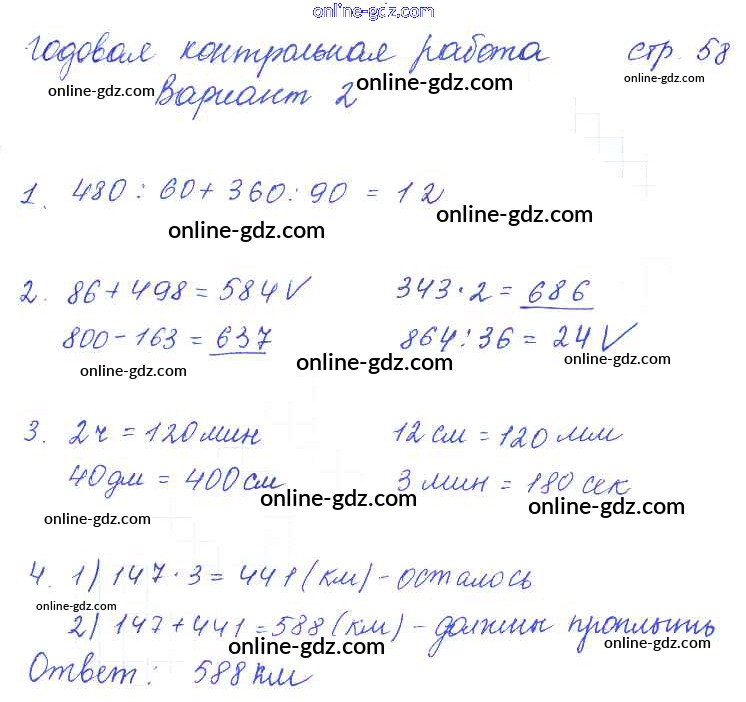 online-gdz.com
Годовая контрольная работа стр. 58
online-gdz.com online-gdz.com online-gdz.com
Вариант 2
1. 480 : 60 + 360 : 90 = 12
online-gdz.com online-gdz.com
2. 86 + 498 = 584 V 343 · 2 = 686
800 - 163 = 637 864 : 36 = 24 V
online-gdz.com online-gdz.com online-gdz.com
3. 2 ч = 120 мин 12 см = 120 мм
40 дм = 400 см 3 мин = 180 сек
online-gdz.com online-gdz.com online-gdz.com
4. 1) 147 · 3 = 441 (км) - осталось
online-gdz.com
2) 147 + 441 = 588 (км) - должны проплыть
online-gdz.com online-gdz.com
Ответ: 588 км